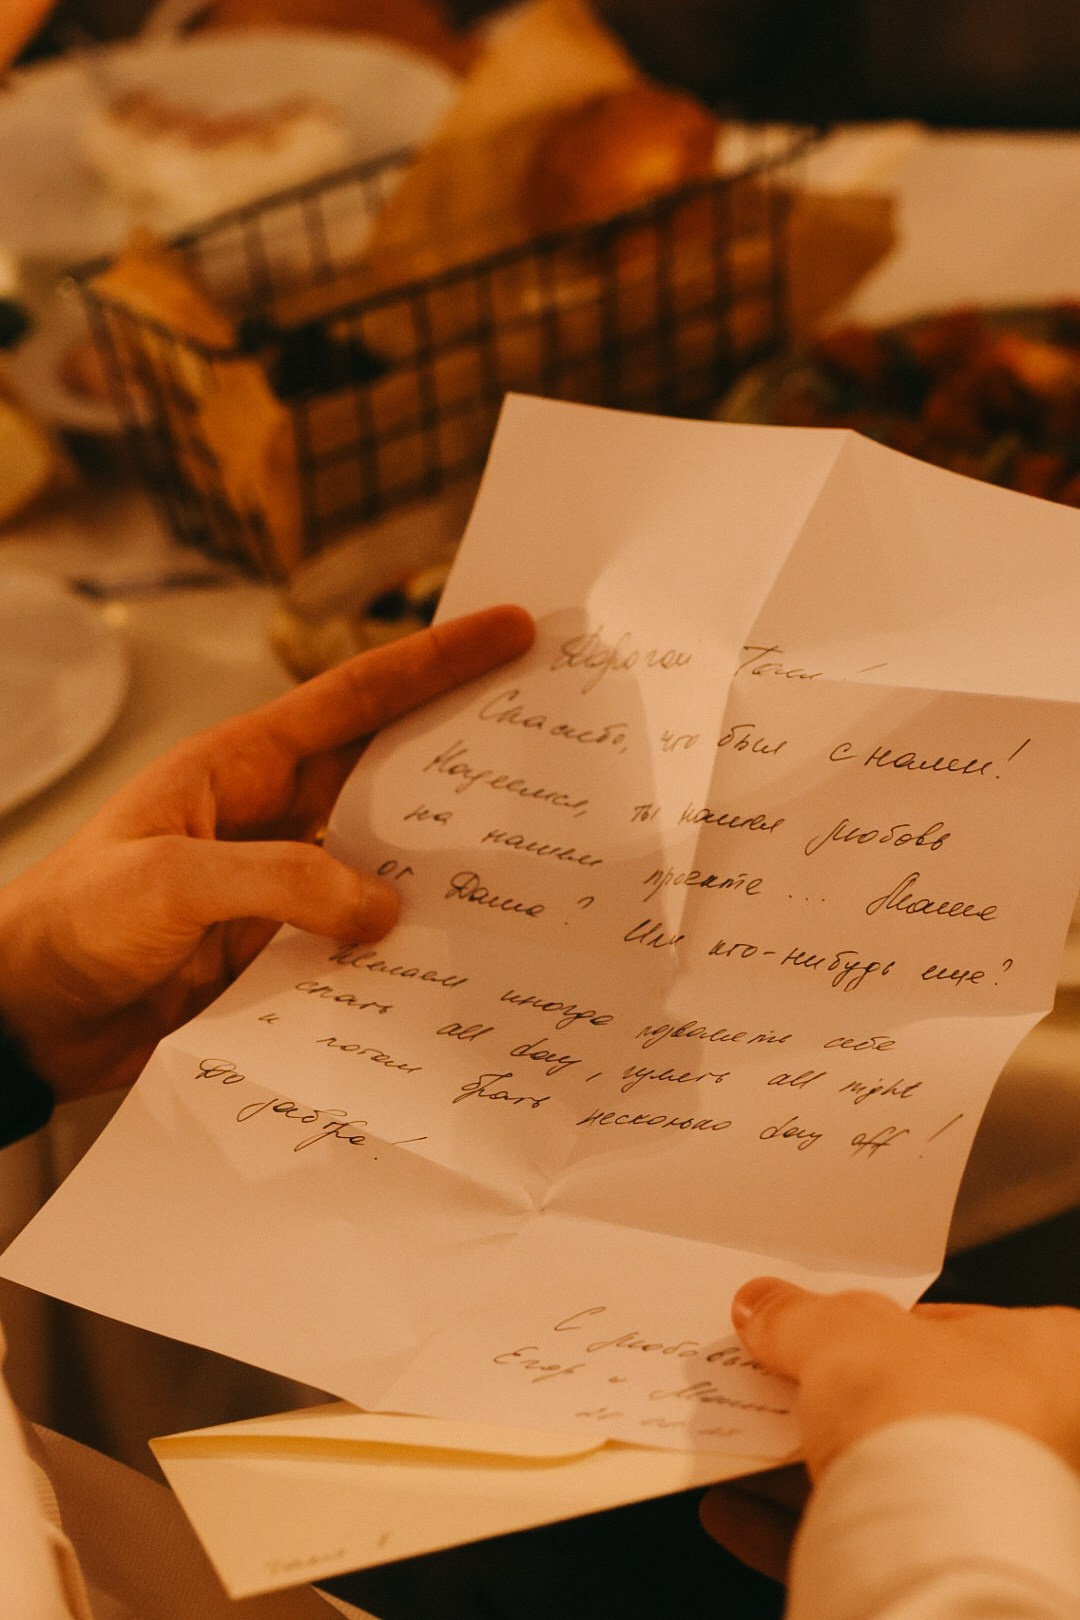 Дорогой Толи!
Спасибо, что был с нами!
Надеемся, ты нашел любовь
на нашем проекте... Маша
от Даша? Или кто-нибудь еще?
Желаем иногда позволять себе
спать all day, гулять all night
и потом брать несколько day off!
До завтра!
С любовью,
Егор и Маша